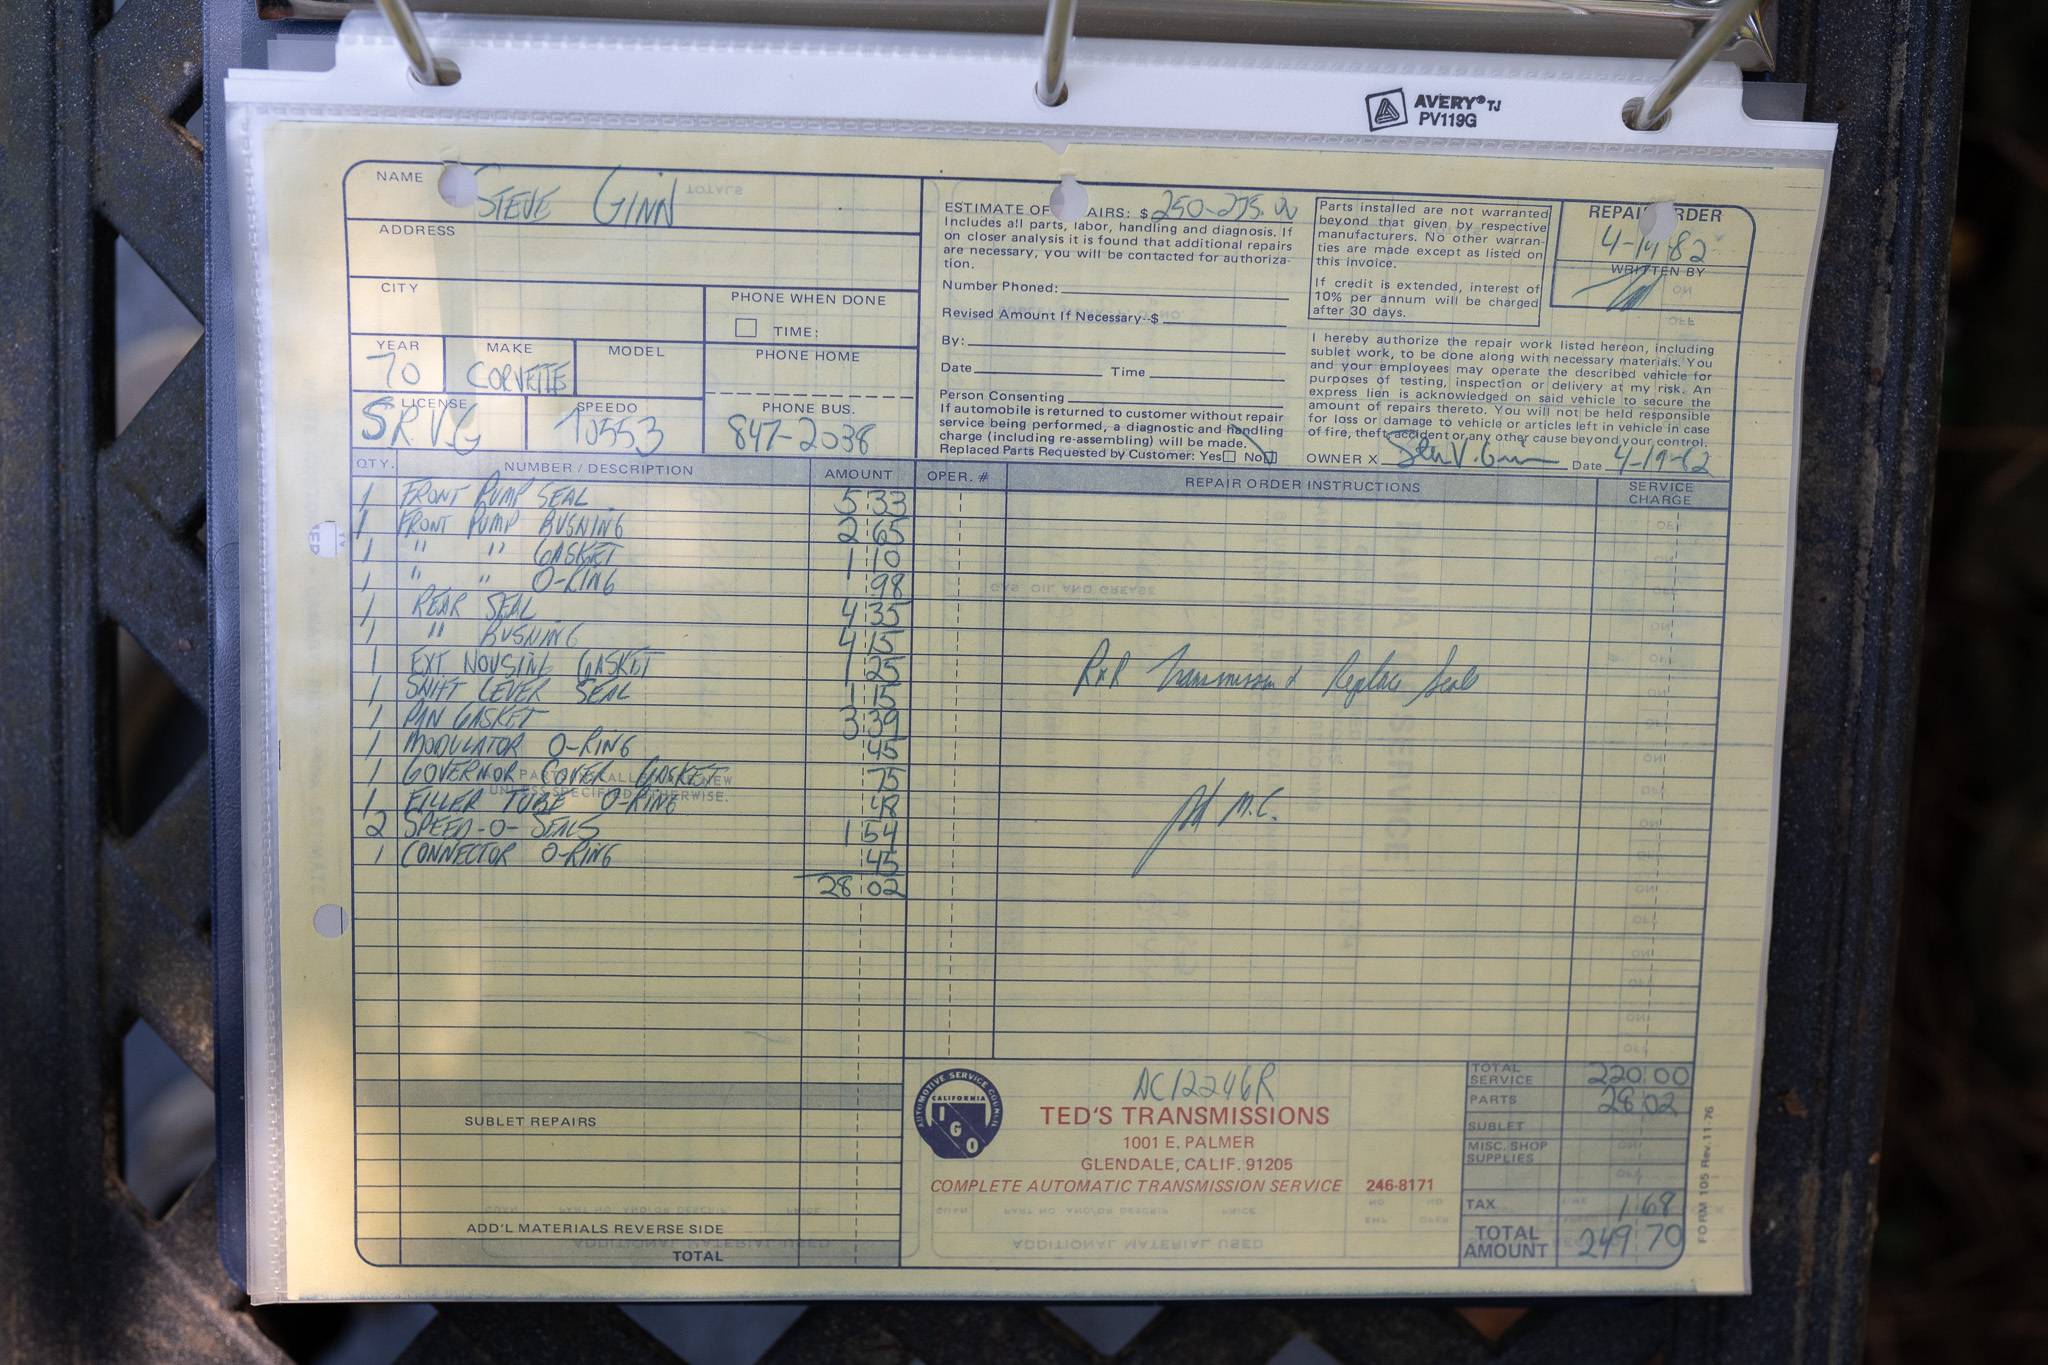 AVERY® TJ
PV119G
NAME STEVE GINN
ADDRESS
CITY
PHONE WHEN DONE
TIME:
YEAR MAKE MODEL PHONE HOME
70 CORVETTE
LICENSE SPEEDO PHONE BUS.
SRVG 70553 847-2038
ESTIMATE OF AIRS: $ 250-275.00
Includes all parts, labor, handling and diagnosis. If
on closer analysis it is found that additional repairs
are necessary, you will be contacted for authoriza-
tion.
Number Phoned:
Revised Amount If Necessary--$
By:
Date Time
Person Consenting
If automobile is returned to customer without repair
service being performed, a diagnostic and handling
charge (including re-assembling) will be made.
Replaced Parts Requested by Customer: Yes No
Parts installed are not warranted
beyond that given by respective
manufacturers. No other warran-
ties are made except as listed on
this invoice.
If credit is extended, interest of
10% per annum will be charged
after 30 days.
REPAIR ORDER
4-19-82
WRITTEN BY
I hereby authorize the repair work listed hereon, including
sublet work, to be done along with necessary materials. You
and your employees may operate the described vehicle for
purposes of testing, inspection or delivery at my risk. An
express lien is acknowledged on said vehicle to secure the
amount of repairs thereto. You will not be held responsible
for loss or damage to vehicle or articles left in vehicle in case
of fire, theft, accident or any other cause beyond your control.
OWNER X Date 4-19-82
QTY. NUMBER / DESCRIPTION AMOUNT OPER. # REPAIR ORDER INSTRUCTIONS SERVICE CHARGE
1 FRONT PUMP SEAL 5 33
1 FRONT PUMP BUSHING 2 65
1 " " GASKET 1 10
1 " " O-RING 98
1 REAR SEAL 4 35
1 " BUSHING 4 15
1 EXT HOUSING GASKET 1 25
1 SHIFT LEVER SEAL 1 15
1 PAN GASKET 3 39
1 MODULATOR O-RING 45
1 GOVERNOR COVER GASKET 75
1 FILLER TUBE O-RING 48
2 SPEED-O-SEALS 1 54
1 CONNECTOR O-RING 45
28 02
R&R Transmission & Replace Seals
M.C.
SUBLET REPAIRS
ADD'L MATERIALS REVERSE SIDE
TOTAL
AUTOMOTIVE SERVICE COUNCIL
CALIFORNIA
IGO
AC12246R
TED'S TRANSMISSIONS
1001 E. PALMER
GLENDALE, CALIF. 91205
COMPLETE AUTOMATIC TRANSMISSION SERVICE 246-8171
TOTAL SERVICE 220.00
PARTS 28 02
SUBLET
MISC. SHOP SUPPLIES
TAX 1 68
TOTAL AMOUNT 249 70
FORM 105 Rev. 11-76